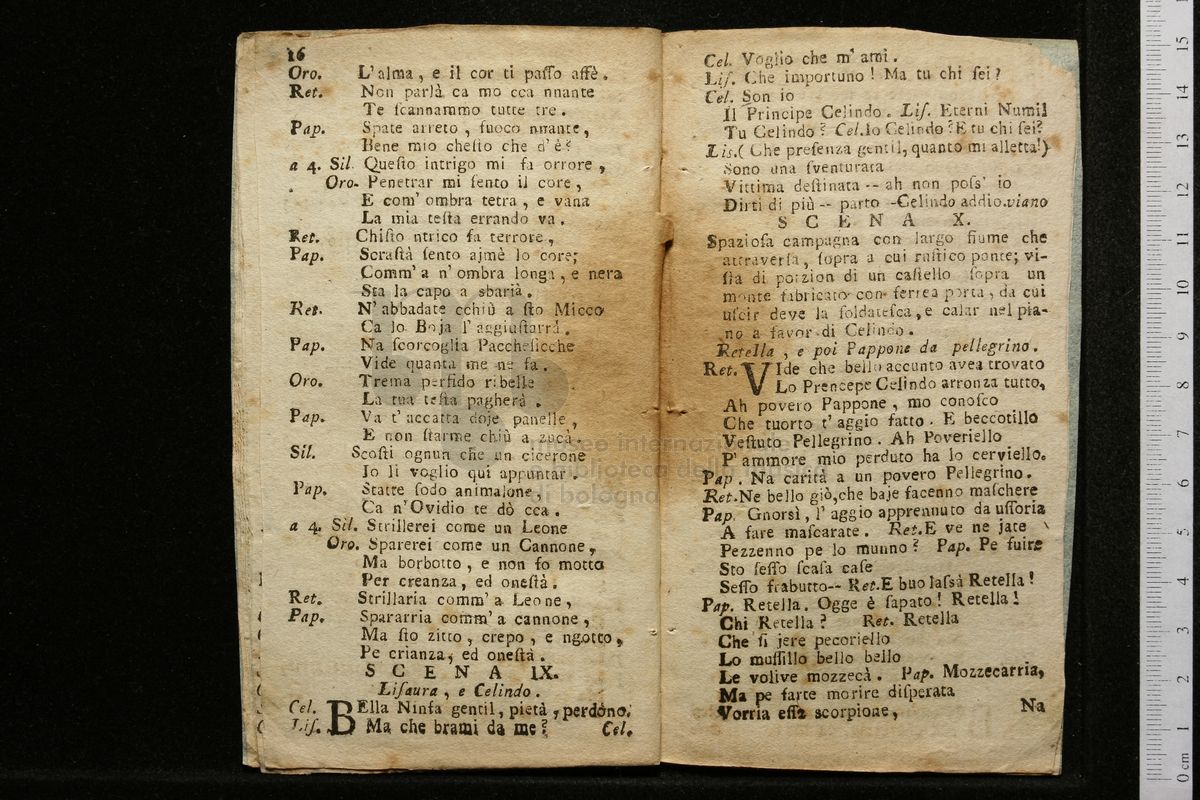 16
Oro. L'alma, e il cor ti paſſo affè.
Ret. Non parlà ca mo cca nnante
Te ſcannammo tutte tre.
Pap. Spate arreto, fuoco nnante,
Bene mio cheſto che d'è?
a 4. Sil. Queſto intrigo mi fa orrore,
Oro. Penetrar mi ſento il core,
E com' ombra tetra, e vana
La mia teſta errando va.
Ret. Chiſto ntrico fa terrore,
Pap. Scraſtà ſento ajmè lo core;
Comm'a n'ombra longa, e nera
Sta la capo a sbarià.
Ret. N'abbadate cchiù a ſto Micco
Ca lo Boja l'aggiuſtarrà.
Pap. Na ſcorcoglia Paccheſicche
Vide quanta me ne fa.
Oro. Trema perfido ribelle
La tua teſta pagherà.
Pap. Va t'accatta doje panelle,
E non ſtarme chiù a zucà.
Sil. Scoſti ognun che un cicerone
Io li voglio qui appuntar.
Pap. Statte ſodo animalone
Ca n'Ovidio te dò cca.
a 4. Sil. Strillerei come un Leone
Oro. Sparerei come un Cannone,
Ma borbotto, e non fo motto
Per creanza, ed oneſtà.
Ret. Strillaria comm'a Leone,
Pap. Spararria comm'a cannone,
Ma ſto zitto, crepo, e ngotto,
Pe crianza, ed oneſtà.
SCENA IX.
Liſaura, e Celindo.
Cel. BElla Ninfa gentil, pietà, perdono.
Liſ. Ma che brami da me? Cel.
Cel. Voglio che m'ami.
Liſ. Che importuno! Ma tu chi ſei?
Cel. Son io
Il Principe Celindo. Liſ. Eterni Numi!
Tu Celindo? Cel. Io Celindo? E tu chi ſei?
Lis. (Che preſenza gentil, quanto mi alletta!)
Sono una ſventurata
Vittima deſtinata -- ah non poſs' io
Dirti di più -- parto -Celindo addio. viano
SCENA X.
Spazioſa campagna con largo fiume che
attraverſa, ſopra a cui ruſtico ponte; vi-
ſta di porzion di un caſtello ſopra un
monte fabricato con ferrea porta, da cui
uſcir deve la ſoldateſca, e calar nel pia-
no a favor di Celindo.
Retella, e poi Pappone da pellegrino.
Ret. VIde che bello accunto avea trovato
Lo Prencepe Celindo arronza tutto,
Ah povero Pappone, mo conoſco
Che tuorto t'aggio fatto. E beccotillo
Veſtuto Pellegrino. Ah Poveriello
P'ammore mio perduto ha lo cerviello.
Pap. Na carità a un povero Pellegrino.
Ret. Ne bello giò, che baje facenno maſchere
Pap. Gnorsì, l'aggio apprennuto da uſſoria
A fare maſcarate. Ret. E ve ne jate
Pezzenno pe lo munno? Pap. Pe fuire
Sto ſeſſo ſcaſa caſe
Seſſo frabutto-- Ret. E buo laſsà Retella!
Pap. Retella. Ogge è ſapato! Retella!
Chi Retella? Ret. Retella
Che ſi jere pecoriello
Lo muſſillo bello bello
Le volive mozzecà. Pap. Mozzecarria,
Ma pe farte morire diſperata
Vorria eſſa scorpione,
Na
museo internazionale
e biblioteca della musica
di bologna
0 cm 1 2 3 4 5 6 7 8 9 10 11 12 13 14 15